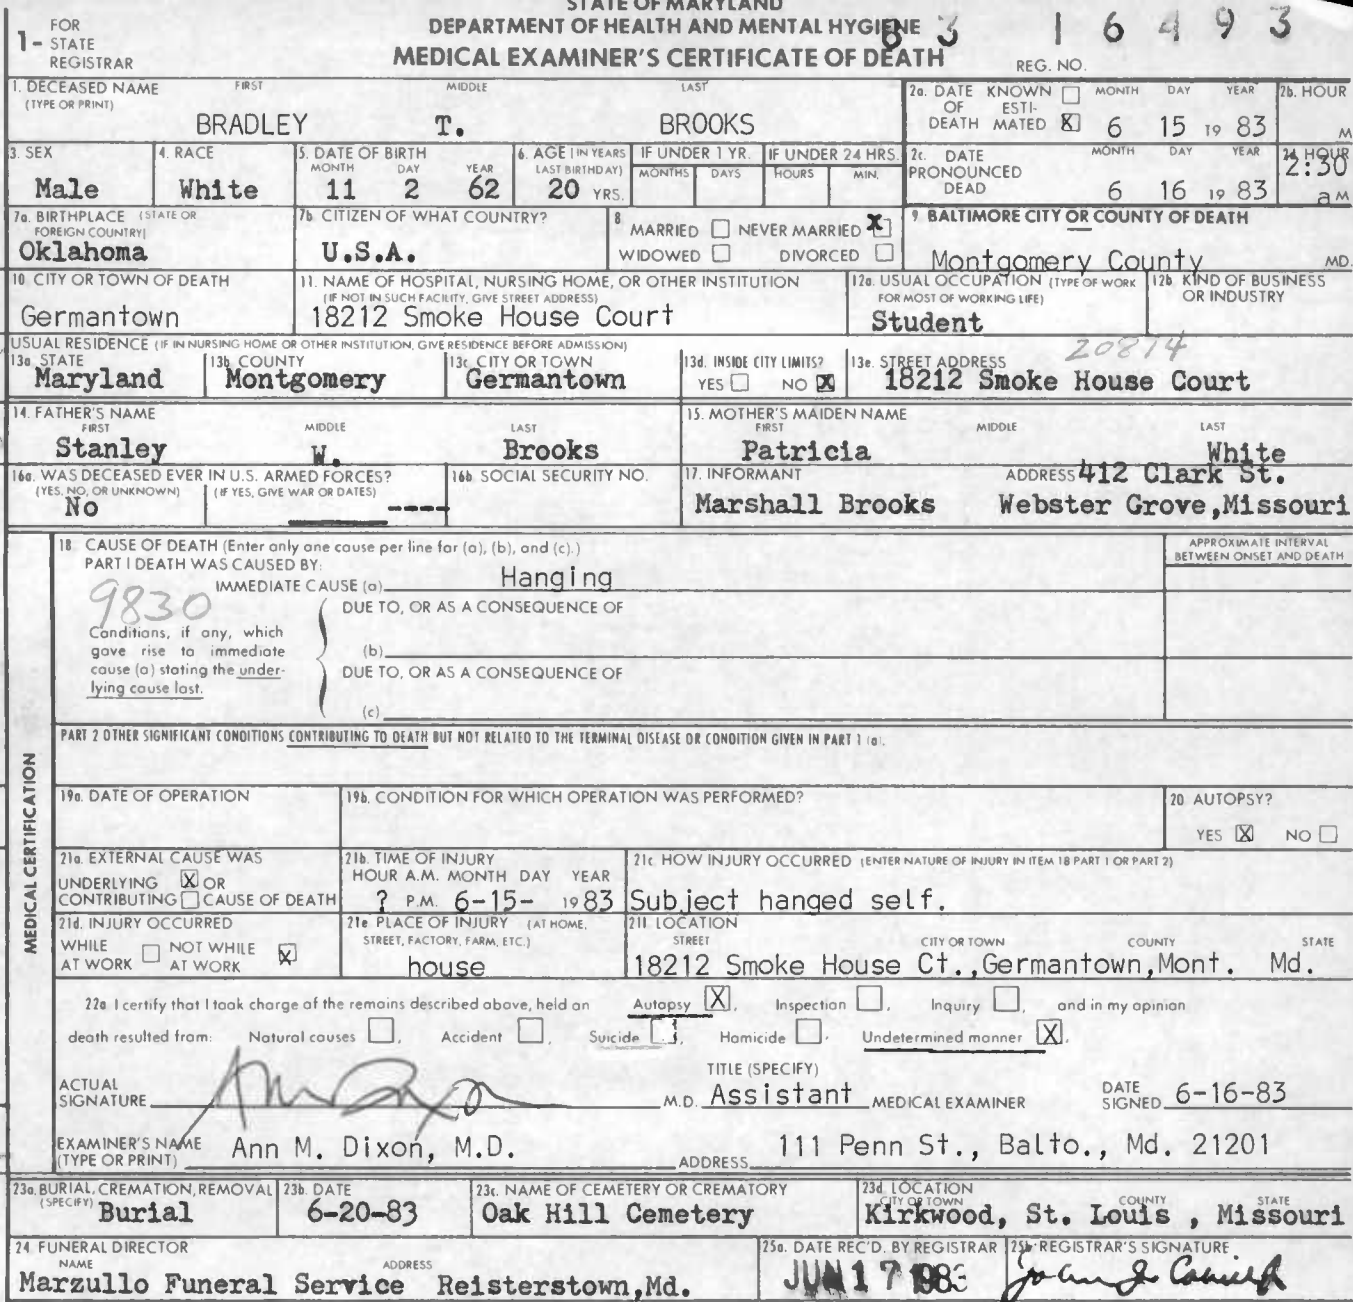 STATE OF MARYLAND
DEPARTMENT OF HEALTH AND MENTAL HYGIENE
MEDICAL EXAMINER'S CERTIFICATE OF DEATH
1- FOR STATE REGISTRAR
83 16493
REG. NO.
1. DECEASED NAME (TYPE OR PRINT) FIRST MIDDLE LAST
BRADLEY T. BROOKS
2a. DATE OF DEATH KNOWN ☐ ESTI-MATED ☒ MONTH DAY YEAR
6 15 19 83
2b. HOUR
M
3. SEX
Male
4. RACE
White
5. DATE OF BIRTH MONTH DAY YEAR
11 2 62
6. AGE (IN YEARS LAST BIRTHDAY)
20 YRS.
IF UNDER 1 YR. MONTHS DAYS
IF UNDER 24 HRS. HOURS MIN.
2c. DATE PRONOUNCED DEAD MONTH DAY YEAR
6 16 19 83
2d. HOUR
2:30 a M
7a. BIRTHPLACE (STATE OR FOREIGN COUNTRY)
Oklahoma
7b. CITIZEN OF WHAT COUNTRY?
U.S.A.
8. MARRIED ☐ NEVER MARRIED ☒
WIDOWED ☐ DIVORCED ☐
9. BALTIMORE CITY OR COUNTY OF DEATH
Montgomery County MD.
10. CITY OR TOWN OF DEATH
Germantown
11. NAME OF HOSPITAL, NURSING HOME, OR OTHER INSTITUTION
(IF NOT IN SUCH FACILITY, GIVE STREET ADDRESS)
18212 Smoke House Court
12a. USUAL OCCUPATION (TYPE OF WORK FOR MOST OF WORKING LIFE)
Student
12b. KIND OF BUSINESS OR INDUSTRY
USUAL RESIDENCE (IF IN NURSING HOME OR OTHER INSTITUTION, GIVE RESIDENCE BEFORE ADMISSION)
13a. STATE
Maryland
13b. COUNTY
Montgomery
13c. CITY OR TOWN
Germantown
13d. INSIDE CITY LIMITS?
YES ☐ NO ☒
13e. STREET ADDRESS
20874
18212 Smoke House Court
14. FATHER'S NAME FIRST MIDDLE LAST
Stanley W. Brooks
15. MOTHER'S MAIDEN NAME FIRST MIDDLE LAST
Patricia White
16a. WAS DECEASED EVER IN U.S. ARMED FORCES?
(YES, NO, OR UNKNOWN) (IF YES, GIVE WAR OR DATES)
No ----
16b. SOCIAL SECURITY NO.
17. INFORMANT ADDRESS 412 Clark St.
Marshall Brooks Webster Grove,Missouri
MEDICAL CERTIFICATION
18. CAUSE OF DEATH (Enter only one cause per line for (a), (b), and (c).)
PART I DEATH WAS CAUSED BY:
IMMEDIATE CAUSE (a) Hanging
APPROXIMATE INTERVAL BETWEEN ONSET AND DEATH
9830
DUE TO, OR AS A CONSEQUENCE OF
Conditions, if any, which gave rise to immediate cause (a) stating the under-lying cause last.
(b)
DUE TO, OR AS A CONSEQUENCE OF
(c)
PART 2 OTHER SIGNIFICANT CONDITIONS CONTRIBUTING TO DEATH BUT NOT RELATED TO THE TERMINAL DISEASE OR CONDITION GIVEN IN PART 1 (a).
19a. DATE OF OPERATION
19b. CONDITION FOR WHICH OPERATION WAS PERFORMED?
20. AUTOPSY?
YES ☒ NO ☐
21a. EXTERNAL CAUSE WAS
UNDERLYING ☒ OR
CONTRIBUTING ☐ CAUSE OF DEATH
21b. TIME OF INJURY
HOUR A.M. MONTH DAY YEAR
? P.M. 6-15- 1983
21c. HOW INJURY OCCURRED (ENTER NATURE OF INJURY IN ITEM 18 PART 1 OR PART 2)
Subject hanged self.
21d. INJURY OCCURRED
WHILE AT WORK ☐ NOT WHILE AT WORK ☒
21e. PLACE OF INJURY (AT HOME, STREET, FACTORY, FARM, ETC.)
house
21f. LOCATION
STREET CITY OR TOWN COUNTY STATE
18212 Smoke House Ct.,Germantown,Mont. Md.
22a. I certify that I took charge of the remains described above, held an Autopsy ☒, Inspection ☐, Inquiry ☐, and in my opinion
death resulted from: Natural causes ☐, Accident ☐, Suicide ☐, Homicide ☐, Undetermined manner ☒.
ACTUAL SIGNATURE M.D.
TITLE (SPECIFY)
Assistant MEDICAL EXAMINER
DATE SIGNED 6-16-83
EXAMINER'S NAME (TYPE OR PRINT) Ann M. Dixon, M.D.
ADDRESS 111 Penn St., Balto., Md. 21201
23a. BURIAL, CREMATION, REMOVAL (SPECIFY)
Burial
23b. DATE
6-20-83
23c. NAME OF CEMETERY OR CREMATORY
Oak Hill Cemetery
23d. LOCATION
CITY OR TOWN COUNTY STATE
Kirkwood, St. Louis , Missouri
24. FUNERAL DIRECTOR
NAME ADDRESS
Marzullo Funeral Service Reisterstown,Md.
25a. DATE REC'D. BY REGISTRAR
JUN 17 1983
25b. REGISTRAR'S SIGNATURE